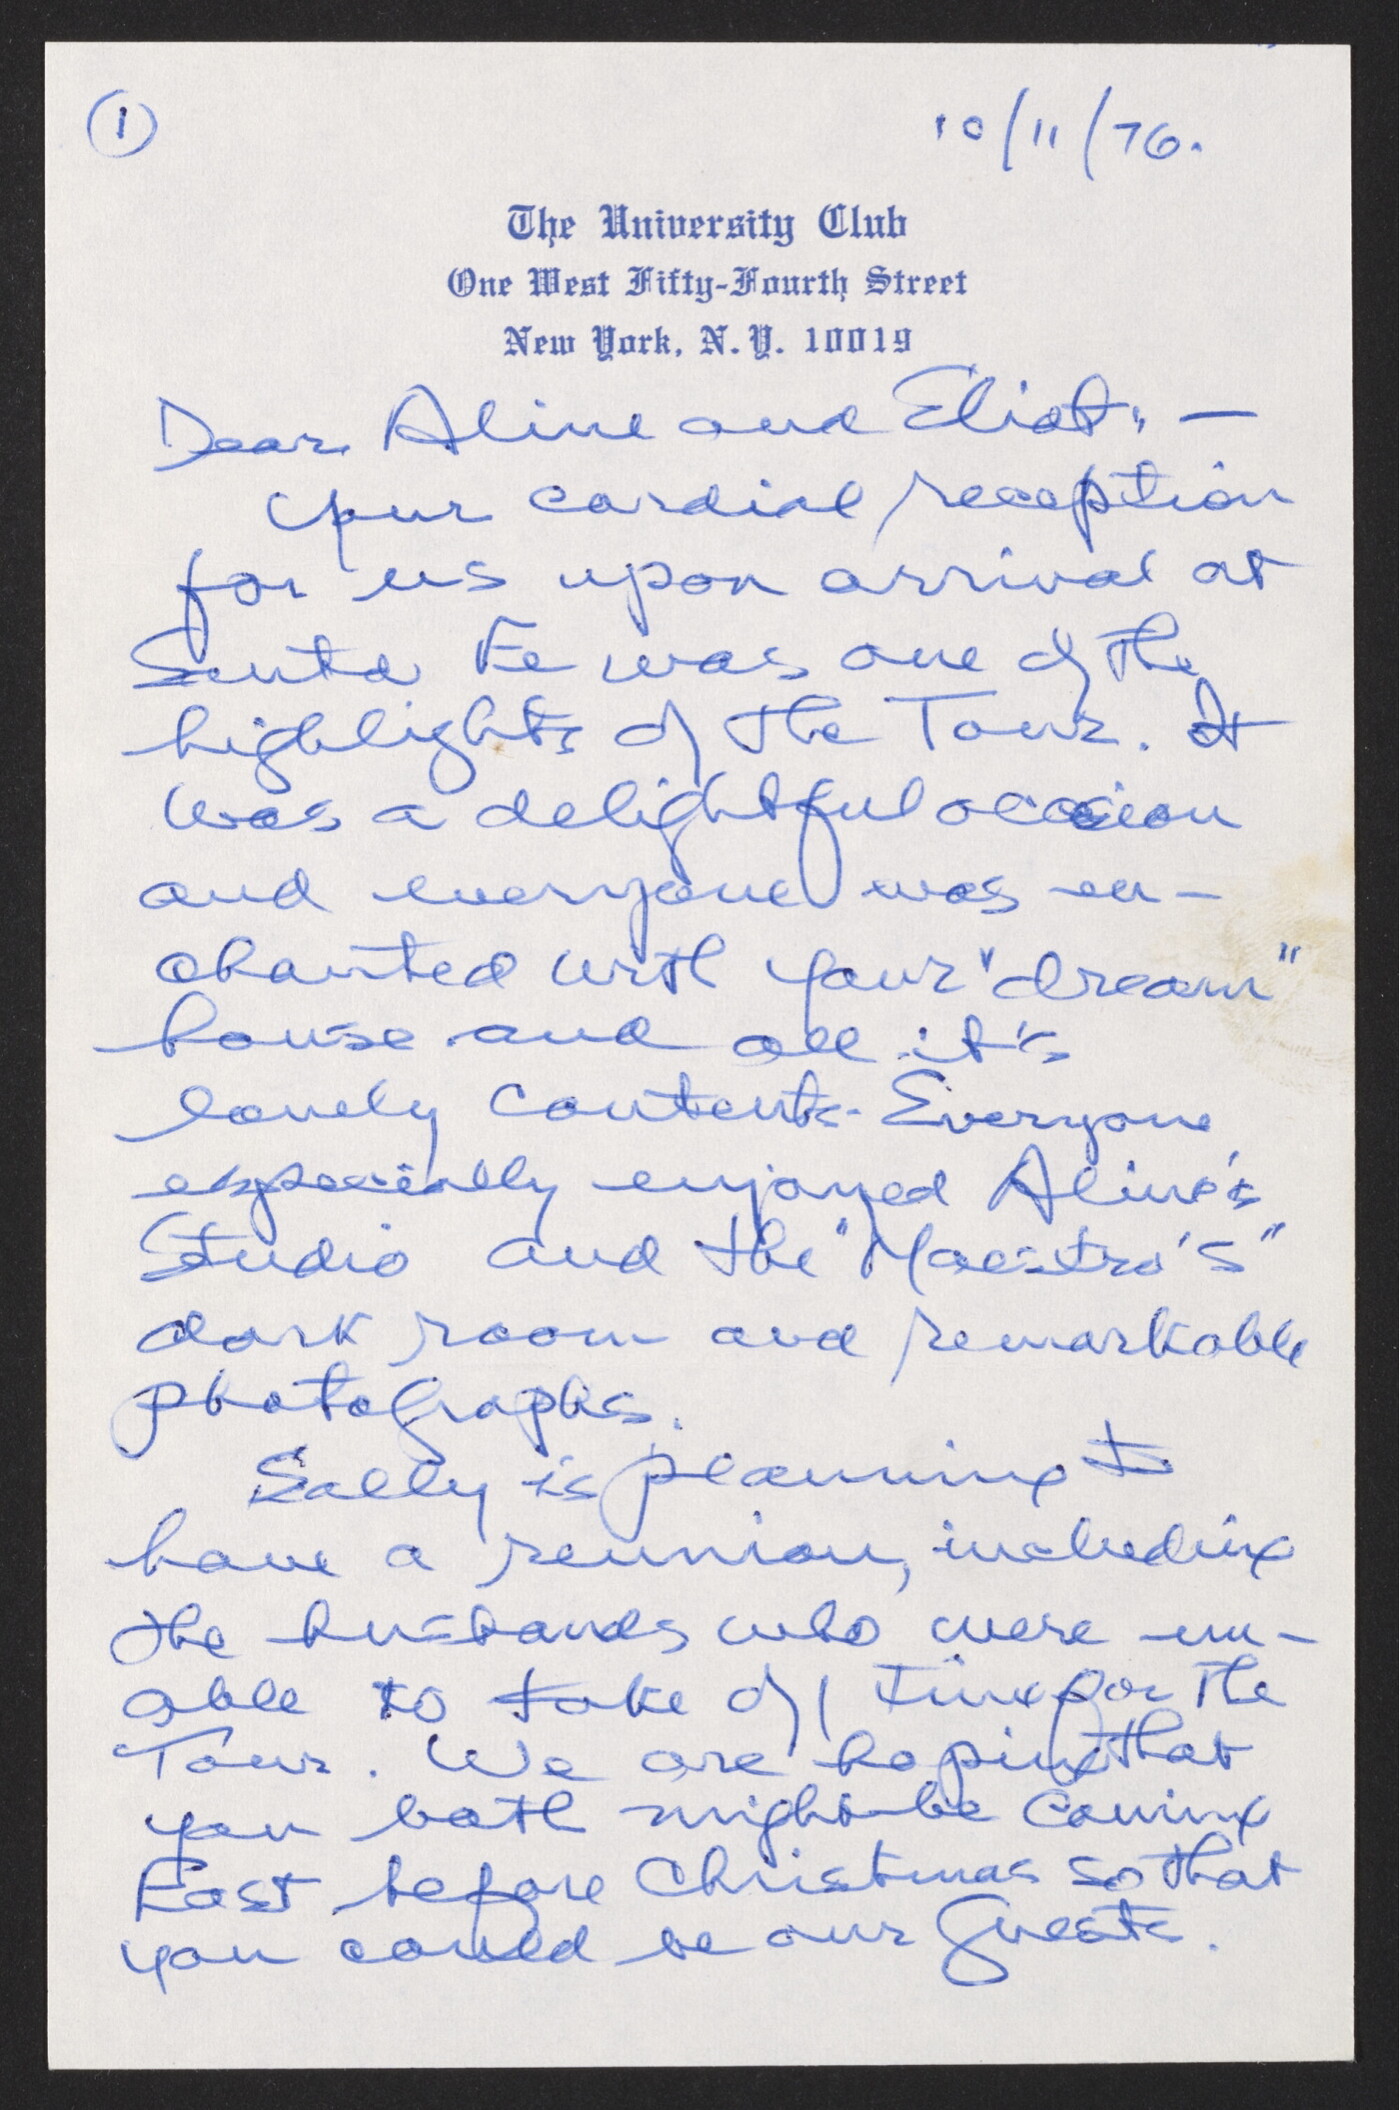 1
10/11/76.
The University Club
One West Fifty-Fourth Street
New York, N.Y. 10019
Dear Aline and Eliot, —
Your cordial reception
for us upon arrival at
Santa Fe was one of the
highlights of the Tour. It
was a delightful occasion
and everyone was en-
chanted with your "dream"
house and all it's
lovely contents. Everyone
especially enjoyed Aline's
Studio and the "Maestro's"
dark room and remarkable
photographs.
Sally is planning to
have a reunion, including
the husbands who were un-
able to take off time for the
Tour. We are hoping that
you both might be coming
East before Christmas so that
you could be our guests.